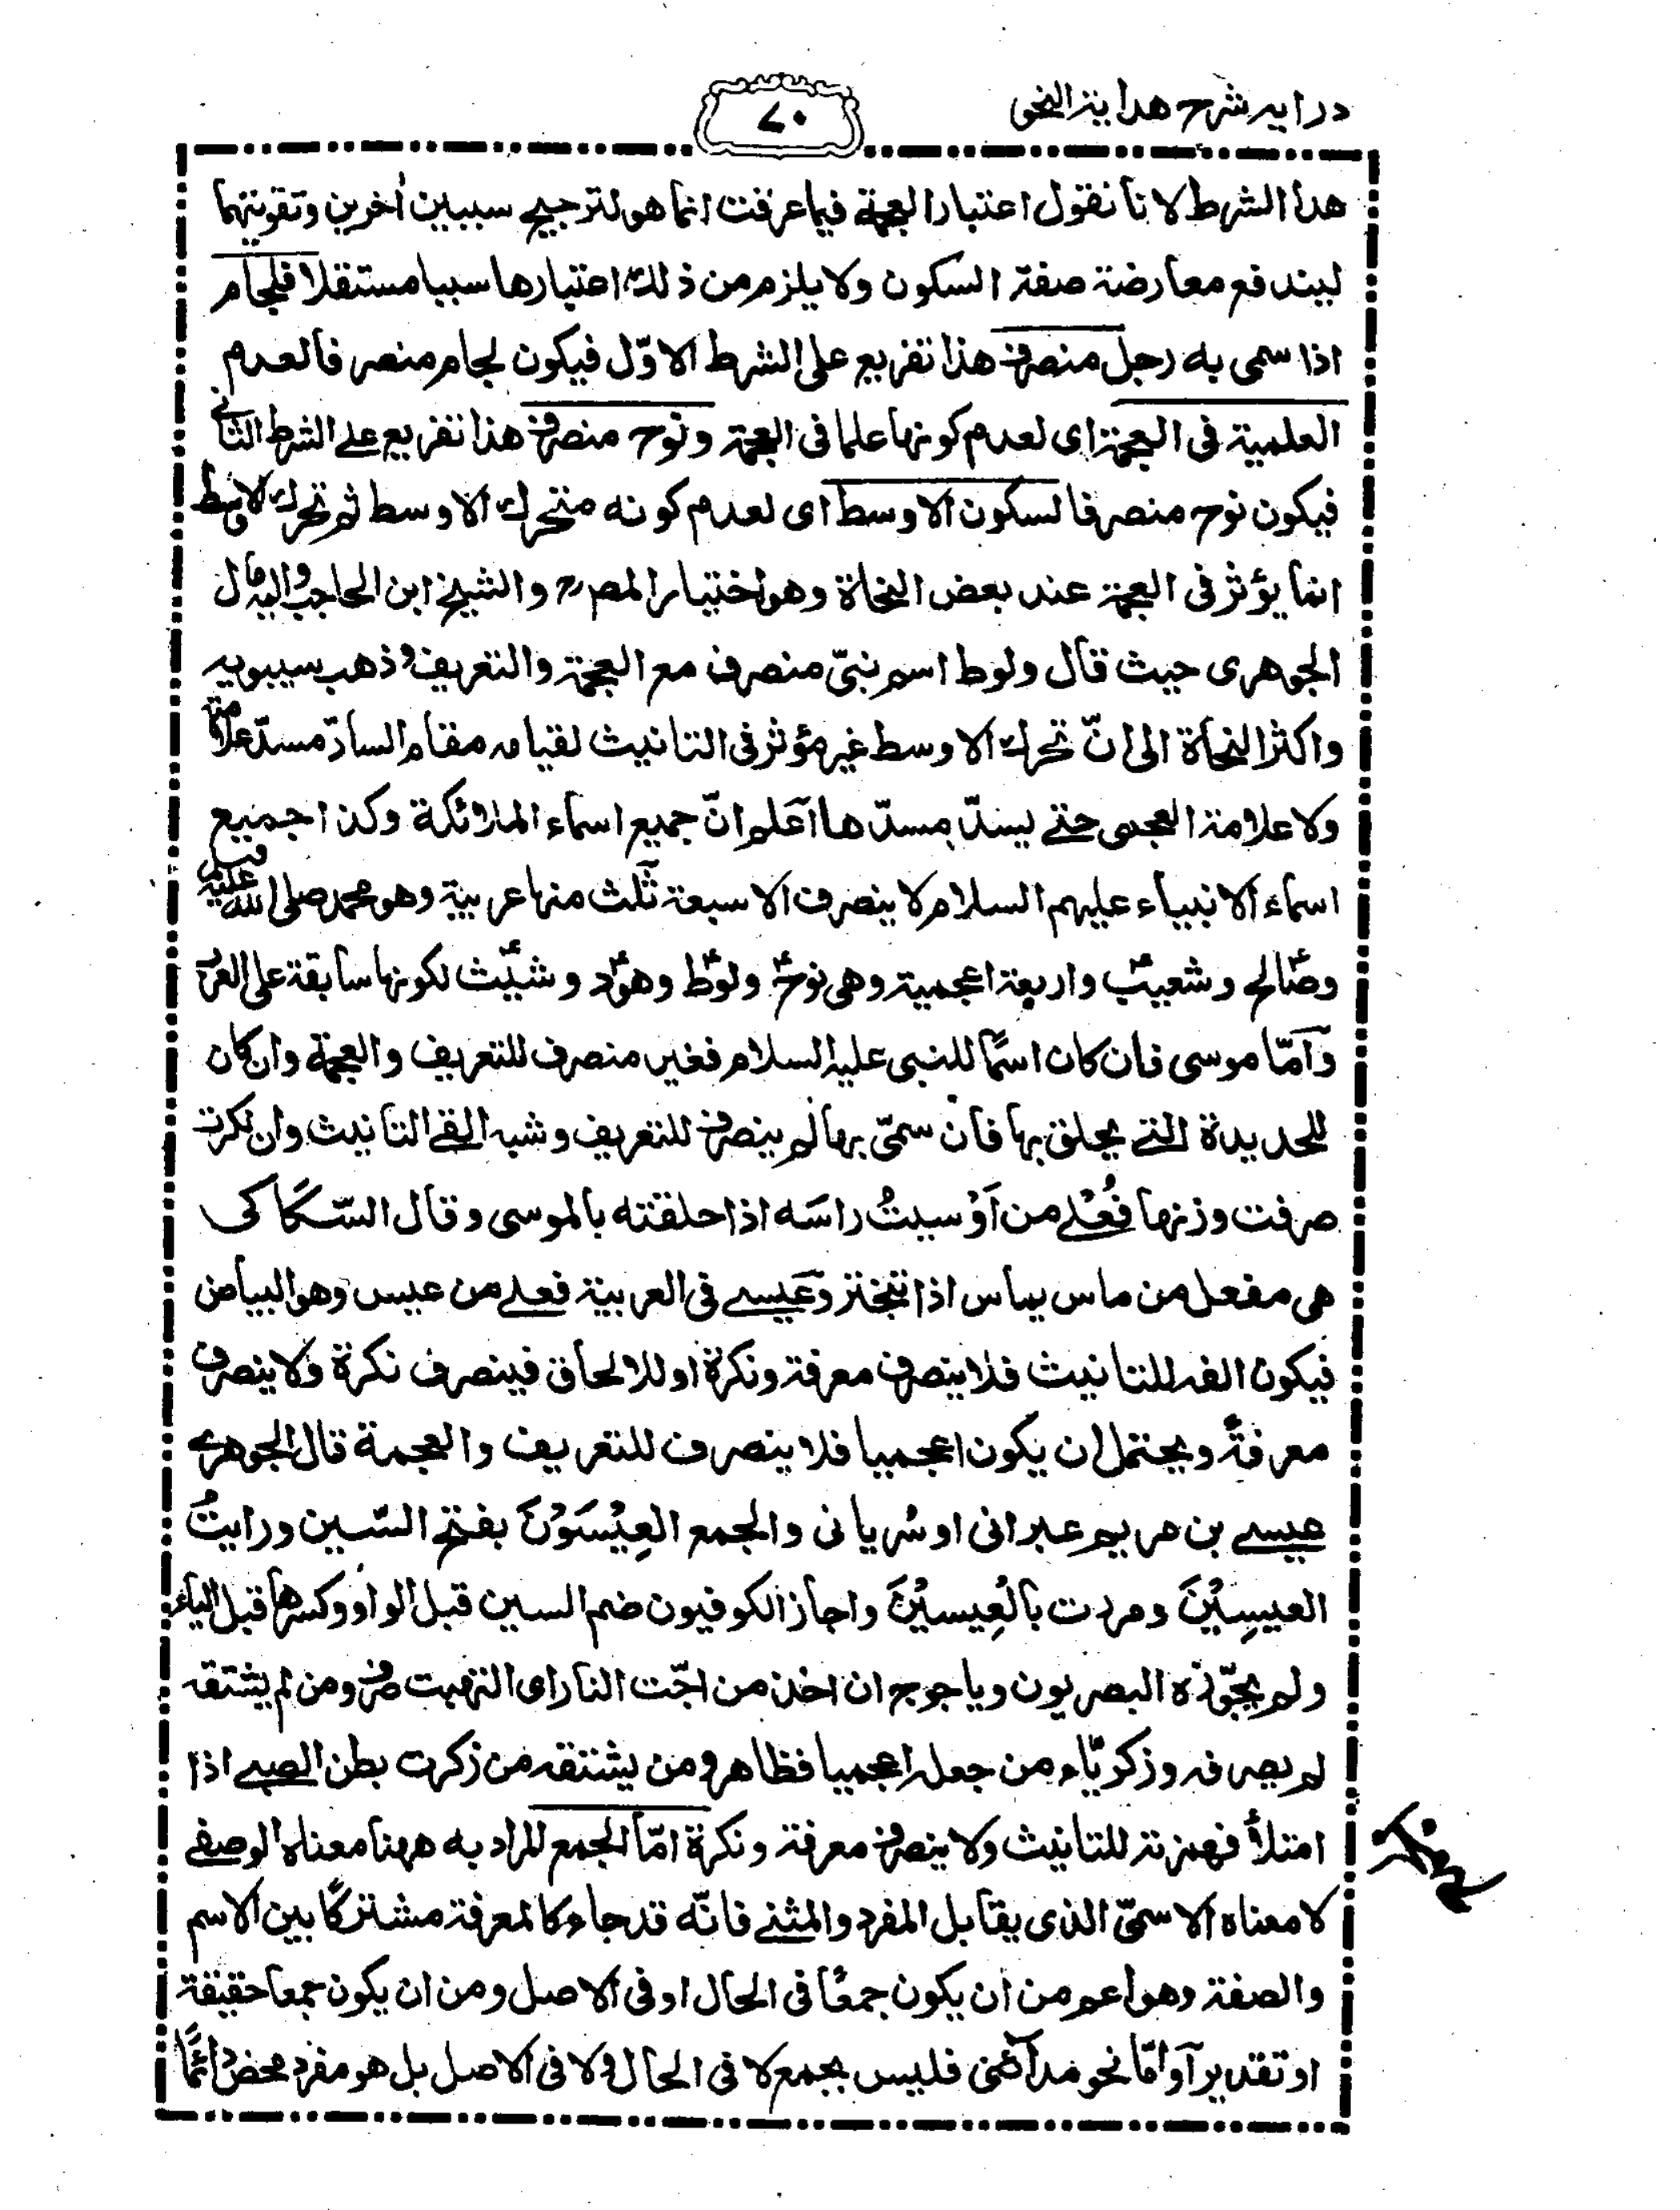 درايه شرح هداية النحو
٧٠
هذا الشرط لانا نقول اعتبار العجمة فيما عرفت انما هو لترجيح سببين أخرين وتقويتهما
ليندفع معارضة صفة السكون ولا يلزم من ذلك اعتبارها سببا مستقلا فلجام
اذا سمى به رجل منصرف هذا تفريع على الشرط الاوّل فيكون لجام منصرفا لعدم
العلمية فى العجمة اى لعدم كونها علما فى العجمة ونوح منصرف هذا تفريع على الشرط الثانى
فيكون نوح منصرفا لسكون الاوسط اى لعدم كونه متحرك الاوسط ثم تحرك الاوسط
انما يؤثر فى العجمة عند بعض النحاة وهو اختيار المصرح والشيخ ابن الحاجب واليه مال
الجوهرى حيث قال ولوط اسم نبىّ منصرف مع العجمة والتعريف وذهب سيبويه
واكثر النحاة الى انّ تحرك الاوسط غير مؤثر فى التانيث لقيامه مقام السادّ مسدّ علامة
ولا علامة العجمى حتے يسدّ مسدّها اعلم انّ جميع اسماء الملائكة وكذا جميع
اسماء الانبياء عليهم السلام لا ينصرف الا سبعة ثلث منها عربية وهو محمد صلى الله عليه وسلم
وصالحؑ وشعيبؑ واربعة اعجمية وهى نوحؑ ولوطؑ وهودؑ وشيثؑ لكونها سابقة على العرب
وآمّا موسى فان كان اسمًا للنبى عليه السلام فغير منصرف للتعريف والعجمة وان كان
للحديدة التے يحلق بها فان سمىّ بها لم ينصرف للتعريف وشبه الفے التانيث وان نكرت
صرفت وزنها فُعْلے من اَوْسيتُ راسَه اذا حلقته بالموسى وقال السّكاكى
هى مفعل من ماس يماس اذا تبختر وعيسے فى العربية فعلے من عيس وهو البياض
فيكون الفه للتانيث فلا ينصرف معرفة ونكرة او للالحاق فينصرف نكرة ولا ينصرف
معرفةً ويحتمل ان يكون اعجميا فلا ينصرف للتعريف والعجمة قال الجوهرے
عيسے بن مريم عبرانى او سُريانى والجمع العِيْسَوْنَ بفتح السّين ورايتُ
العيسِيْنَ ومررت بالعِيسيْنَ واجاز الكوفيون ضم السين قبل الواو وكسرها قبل الياء
ولم يجوّزه البصريون وياجوج ان اخذ من اجّت النار اى التهبت صرف ومن لم يشتقه
لم يصرفه وزكريّاء من جعله اعجميا فظاهر ومن يشتقه من زكرت بطن الصبے اذا
امتلأ فهمزته للتانيث ولا ينصرف معرفة ونكرة امّا الجمع المراد به ههنا معناه الوصفے
لا معناه الاسمىّ الذى يقابل المفرد والمثنے فانّه قد جاء كالمعرفة مشتركًا بين الاسم
والصفة وهو اعم من ان يكون جمعًا فى الحال او فى الاصل ومن ان يكون جمعا حقيقة
او تقديرا وامّا نحو مدآئنى فليس بجمع لا فى الحال ولا فى الاصل بل هو مفرد محض دائمًا